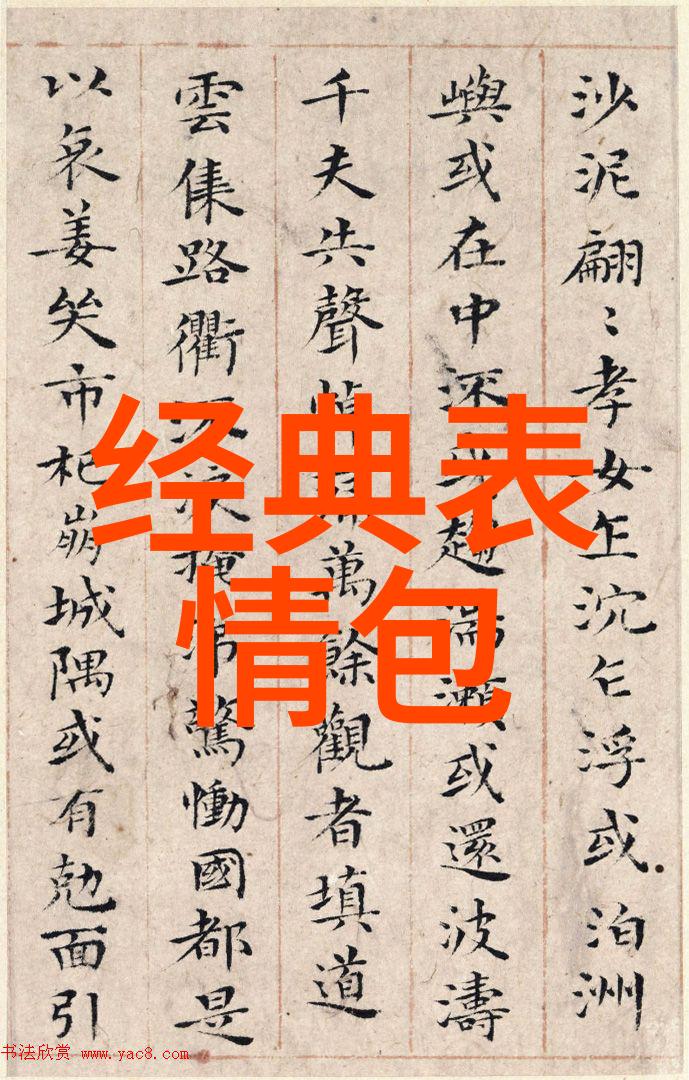 沙泥翩〻孝女乍沉乍浮或泊洲
嶼或在中深或趨湍瀨或還波濤
千夫共聲悼萬餘觀者填道
雲集路衢掩驚慟國都是
以哀姜哭市杞崩城隅或有勊面引
经典表
情包
书法欣赏 www.yac8.com